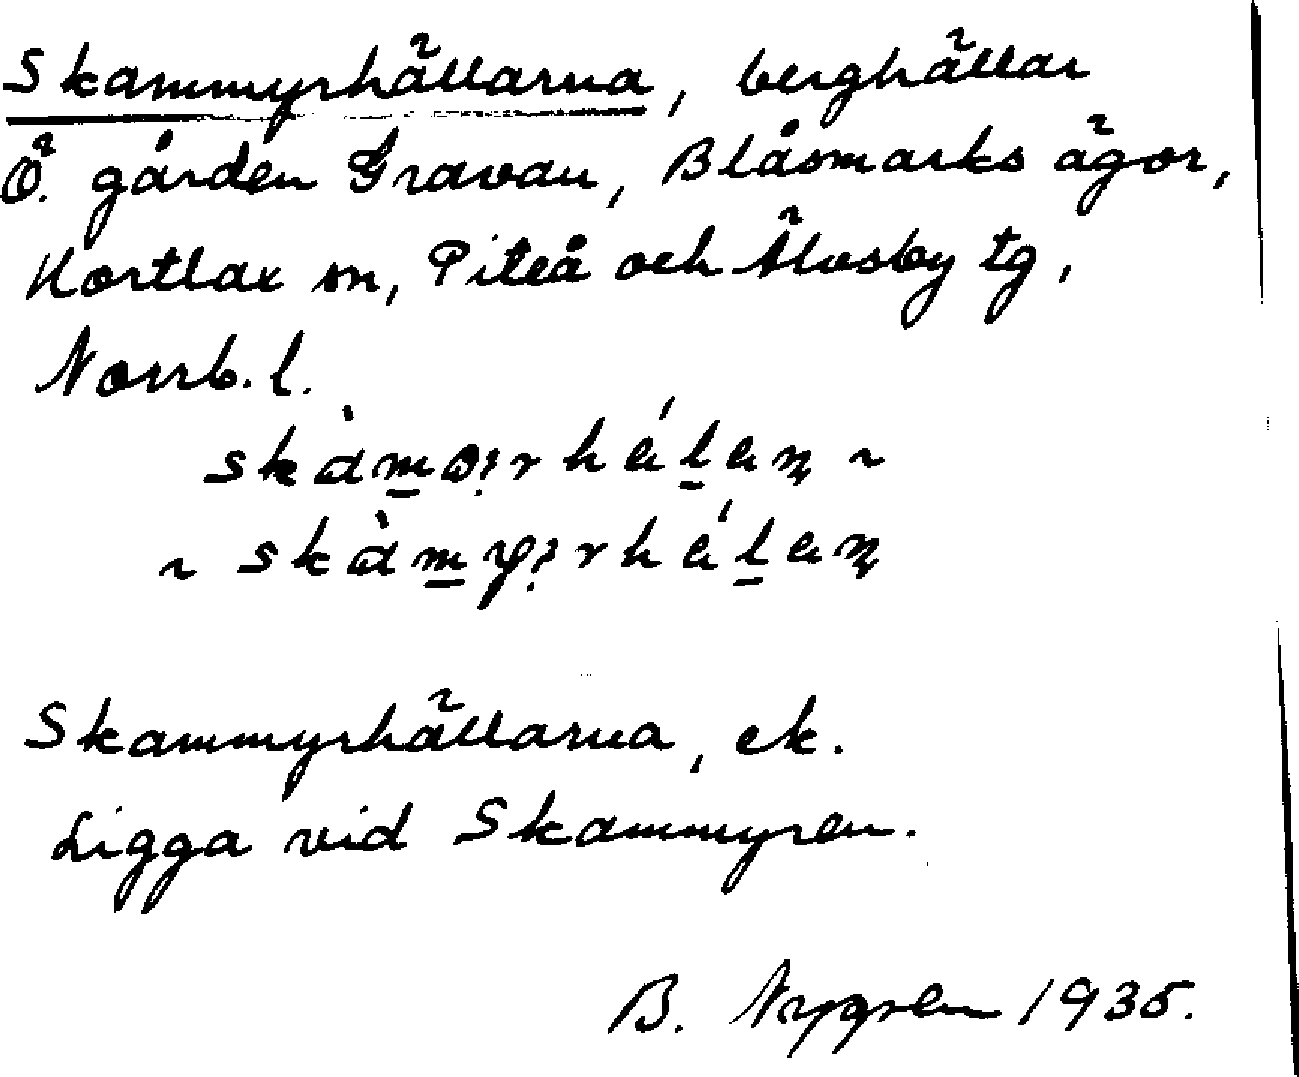 Skammyrhällarna, berghällar
Ö. gården Gravan, Blåsmarks ägor,
Hortlax sn, Piteå och Älvsby tg,
Norrb. l.
Skammyrhällarna, ek.
Ligga vid Skammyren.
B. Nygren 1935.